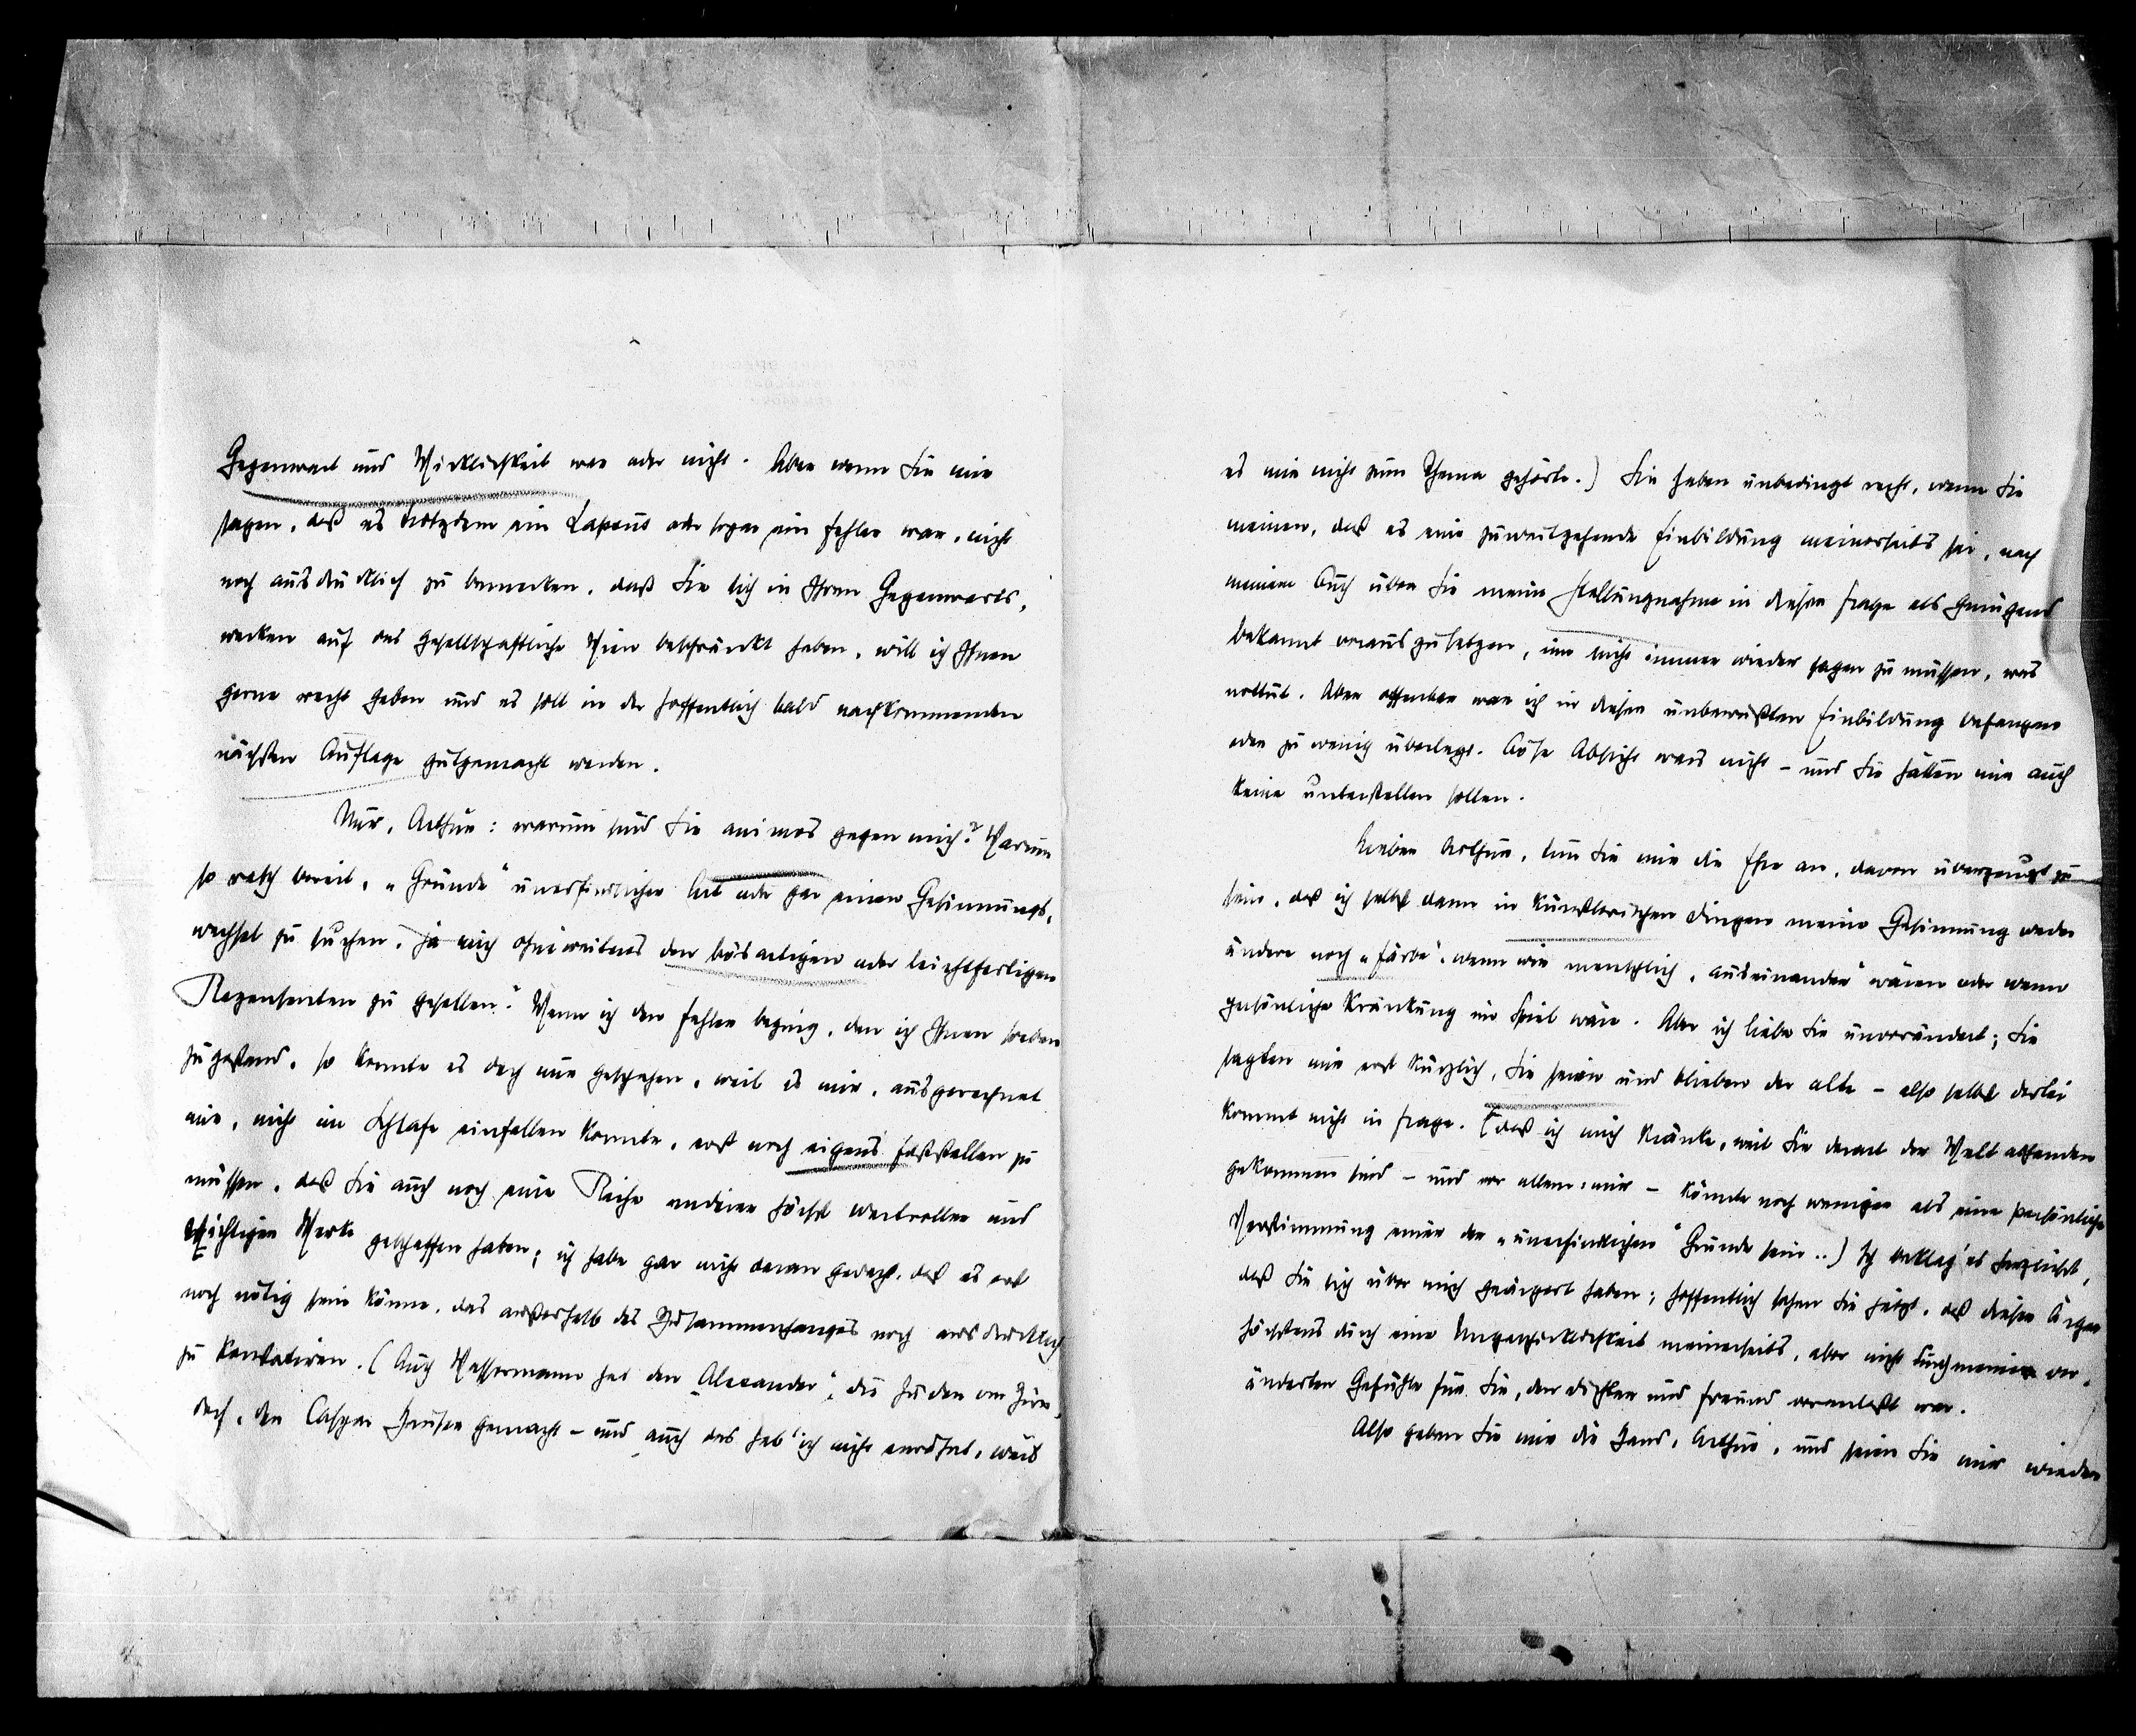 Gegenwart und Wirklichkeit war oder nicht. Aber wenn Sie mir
sagen, daß es trotzdem ein Lapsus oder sogar ein Fehler war, nicht
noch ausdrücklich zu bemerken, daß Sie sich in Ihren Gegenwarts-
werken auf das gesellschaftliche Wien beschränkt haben, will ich Ihnen
gerne recht geben und es soll in der hoffentlich bald nachkommenden
nächsten Auflage gutgemacht werden.
Nur, Arthur: warum sind Sie animos gegen mich? Warum
so rasch bereit, „Gründe“ unerfindlicher Art oder gar einen Gesinnungs-
wechsel zu suchen, ja mich ohneweiters den bösartigen oder leichtfertigen
Rezensenten zu gesellen? Wenn ich den Fehler beging, den ich Ihnen soeben
zugestand, so konnte es doch nur geschehen, weil es mir, ausgerechnet
mir, nicht im Schlafe einfallen konnte, erst noch eigens feststellen zu
müssen, daß Sie auch noch eine Reihe anderer höchst wertvoller und
wichtiger Werke geschaffen haben; ich habe gar nicht daran gedacht, daß es erst
noch nötig sein könne, das außerhalb des Zusammenhanges noch ausdrücklich
zu konstatiren. (Auch Wassermann hat den „Alexander“, die Juden von Zirn-
dorf, den Caspar Hauser gemacht – und auch das hab' ich nicht erwähnt, weils
es mir nicht zum Thema gehörte.) Sie haben unbedingt recht, wenn Sie
meinen, daß es eine zuweitgehende Einbildung meinerseits sei, nach
meinem Buch über Sie meine Stellungnahme in dieser Frage als genügend
bekannt vorauszusetzen, um nicht immer wieder sagen zu müssen, was
nottut. Aber offenbar war ich in dieser unbewußten Einbildung befangen
oder zu wenig überlegt. Böse Absicht wars nicht – und Sie hätten mir auch
keine unterstellen sollen.
Lieber Arthur, tun Sie mir die Ehre an, davon überzeugt zu
sein, daß ich selbst dann in künstlerischen Dingen meine Gesinnung weder
ändere noch „färbe“, wenn wir menschlich „auseinander“ wären oder wenn
persönliche Kränkung im Spiel wäre. Aber ich liebe Sie unverändert; Sie
sagten mir erst kürzlich, Sie seien und blieben der alte – also selbst derlei
kommt nicht in Frage. (Daß ich mich kränke, weil Sie derart der Welt abhanden
gekommen sind – und vor allem: mir – könnte noch weniger als eine persönliche
Verstimmung einer der „unerfindlichen“ Gründe sein ..) Ich beklag' es herzlichst,
daß Sie sich über mich geärgert haben; hoffentlich sehen Sie jetzt, daß dieser Ärger
höchstens durch eine Ungeschicklichkeit meinerseits, aber nicht durch meine ver-
änderten Gefühle für Sie, den Dichter und Freund veranlaßt war.
Also geben Sie mir die Hand, Arthur, und seien Sie mir wieder